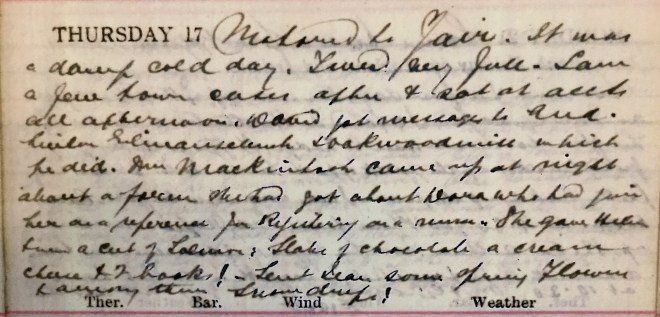 THURSDAY 17 Motored to Fair. It was
a damp cold day. Tweed very full. Saw
a few town cases after & sat at accts
all afternoon. David got messages to
& Oakwoodmill which
he did. Mrs Mackintosh came up at night
about a form she had got about Nora who had given
her as a reference for Registering as a nurse. She gave
a cut of Salmon; Slabs of chocolate a cream
cheese & 2 books! - Sent some Spring Flowers
& among them Snowdrops!
Ther. Bar. Wind Weather